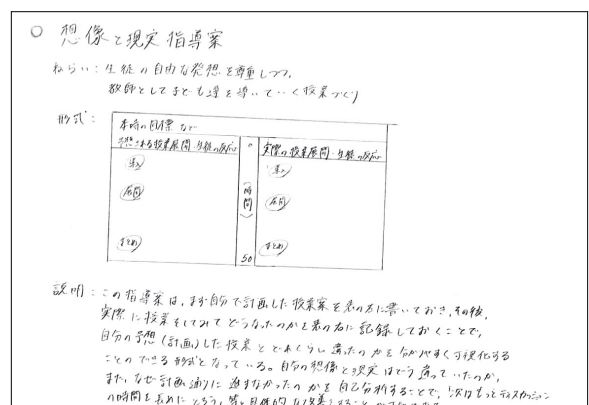 ○ 想像と現実指導案
ねらい：生徒の自由な発想を尊重しつつ、
教師として子ども達を導いていく授業づくり
形式：
本時の目標 など
予想される授業展開・生徒の反応
0
実際の授業展開・生徒の反応
導入
導入
展開
（時間）
展開
まとめ
まとめ
50
説明：この指導案は、まず自分で計画した授業案を表の左に書いておき、その後、
実際に授業をしてみてどうなったのかを表の右に記録しておくことで、
自分の予想(計画)した授業とどれくらい違ったのかを分かりやすく可視化する
ことのできる形式となっている。自分の想像と現実はどう違っていたのか、
また、なぜ計画通りに進まなかったのかを自己分析することで、「次はもっとディスカッション
の時間を長めにとろう」等と具体的な改善